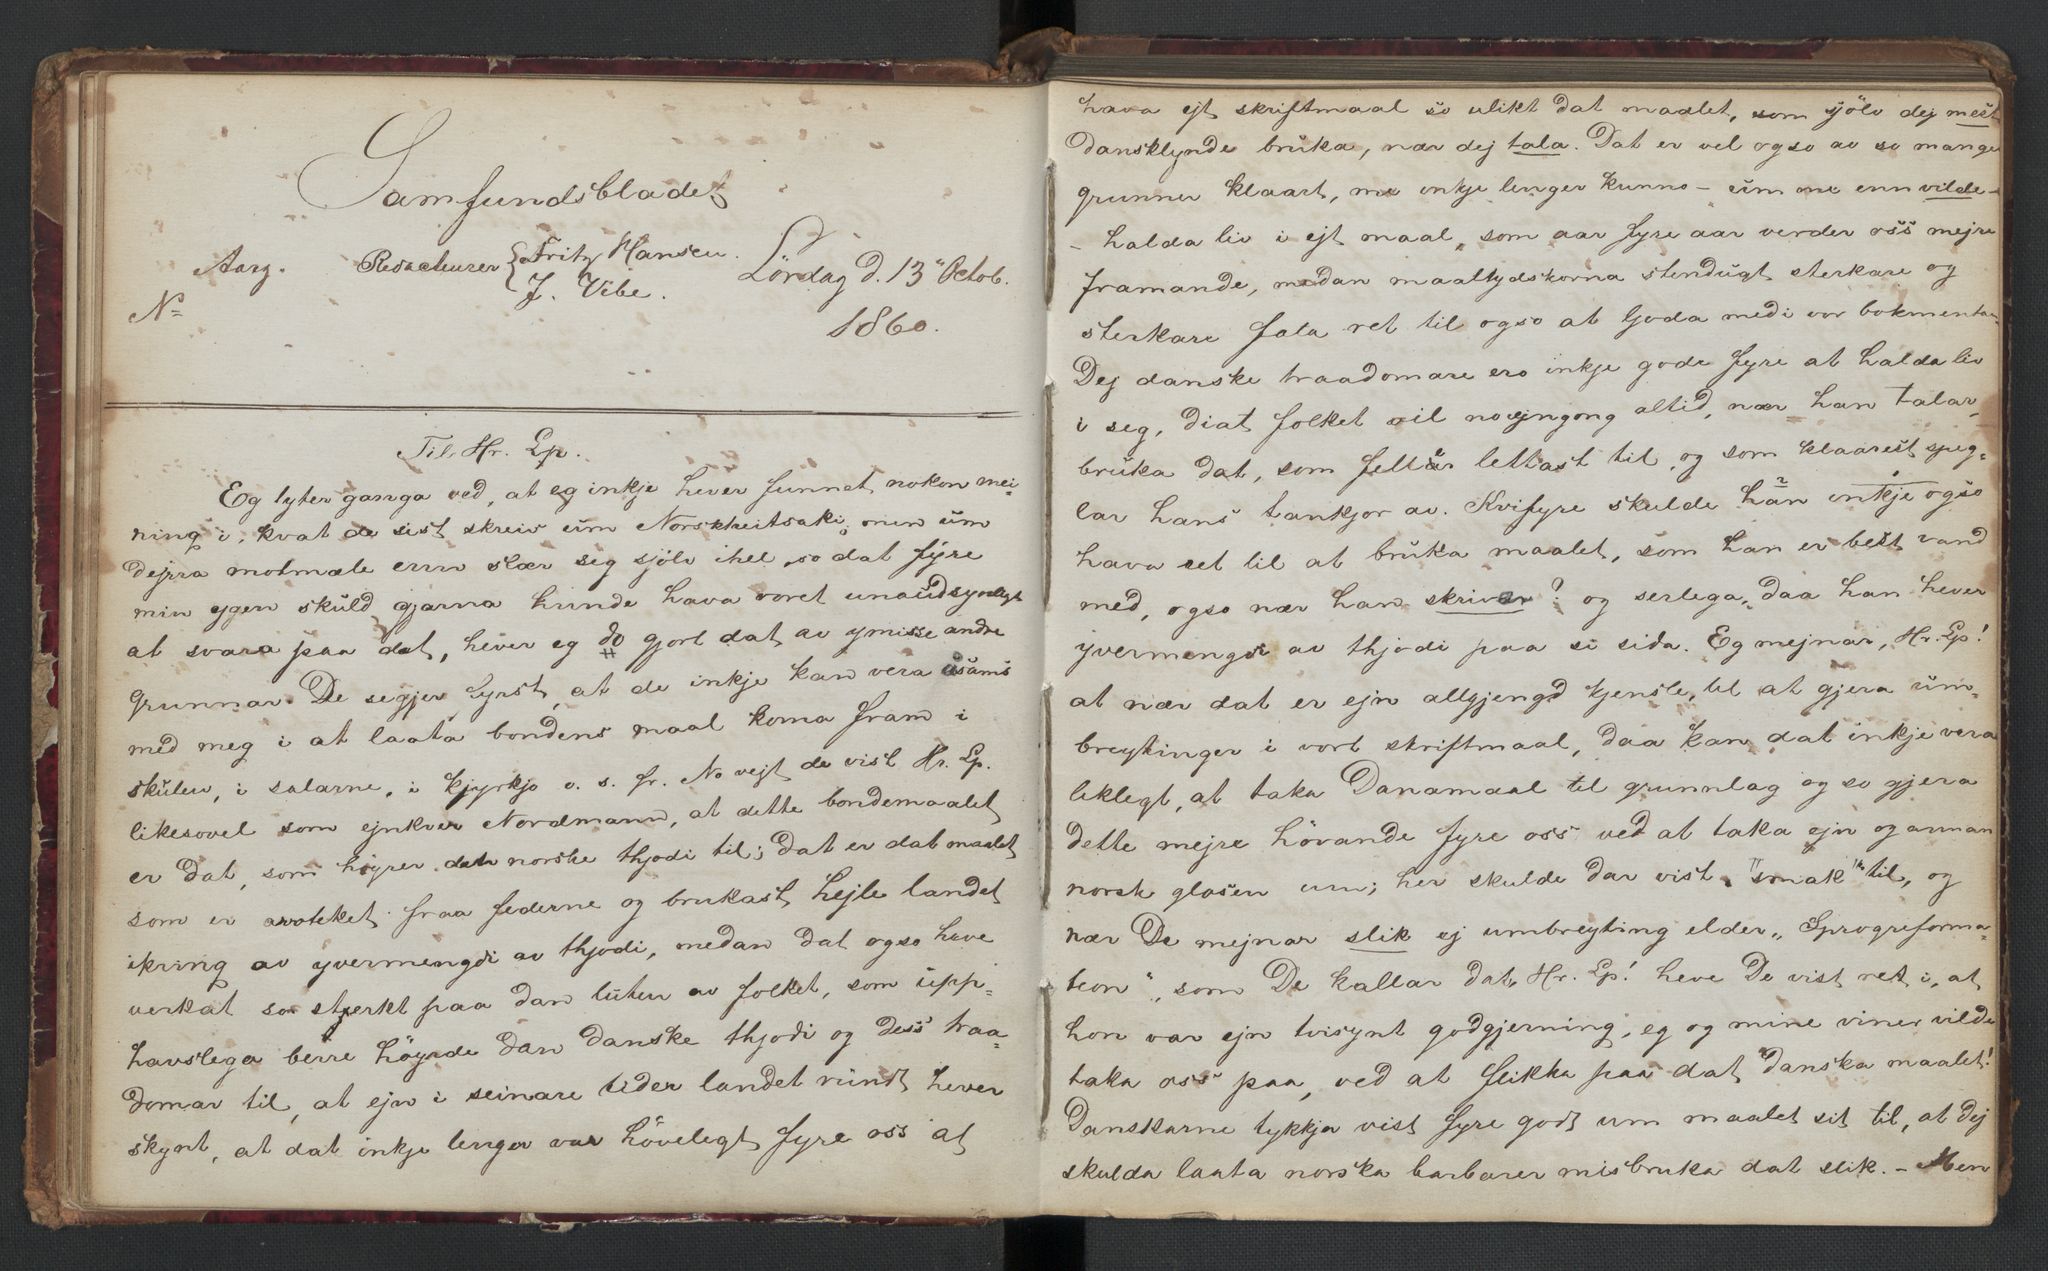 Samfundsbladet
Aarg. Redacteurer { Fritz Hansen. Lördag d. 13 Octob.
J. Vibe.
№ 1860.
Til Hr. Lp.
Eg lyter ganga ved, at eg inkje hever funnet nokon mei-
ning i, kvat de sist skreiv um Norskheitsaki, men um
dejrra motmæle enn skær seg sjölv ihel, so dat fyre
min ygen skuld gjarna kunde hava voret unaudsynlegt
at svara paa det, hever eg do gjort dat av ymisse andre
grunnar. De segjer fyrst, at de inkje kan vera åsams
med meg i at laata bondens maal koma fram i
skulen, i salarne, i kjyrkjo o. s. fr. No vejt de vist Hr. Lp.
likesovel som ejnkver Nordmann, at dette bondemaalet
er dat, som höyrer den norske thjodi til; dat er dat maalet
som er avteket fraa federne og brukast hejle landet
ikring av yvermengdi av thjodi, medan dat ogso heve
verkat so sterkt paa dan luten av folket, som upp-
havslega berre höyrde dan danske thjodi og dess traa-
domar til, at ejn i seinare tider landet rundt hever
skynt, at dat inkje lenger var hövelegt fyre oss at
hava ejt skriftmaal so ulikt dat maalet, som sjölv dej mest
dansklynde bruka, nær dej tala. Dat er vel ogso av so mange
grunner klaart, me inkje lenger kunno – um me enn vilde –
– halda liv i ejt maal, som aar fyre aar verder oss mejre
framande, medan maallydskorna stendugt sterkare og
sterkare fala ret til ogso at ljoda med i vor bokmentar
Dej danske traadomare ero inkje gode fyre at halda liv
i seg, diat folket vil no ejngong altid, nær han talar,
bruka dat, som fell er lettast til, og som klaarest speg-
lar hans tankjor av. Kvifyre skulde han inkje ogso
hava ret til at bruka maalet, som han er best vand
med, ogso nær han skriver? og serlega, daa han hever
yvermengdi av thjodi paa si sida. Eg mejnar, Hr. Lp!
at nær dat er ejn allgjengd kjensle, til at gjera um-
breytinger i vort skriftmaal, daa kan dat inkje vera
liklegt, at taka Danamaal til grunnlag og so gjera
dette mejre hövande fyre oss ved at taka ejn og annan
norsk glosen um; her skulde dar vist "smak" til, og
nær De mejnar slik ej umbreyting elder „Sprogreforma-
tion", som De kallar dat, Hr. Lp! heve De vist ret i, at
hon var ejn tvisynt godgjerning, eg og mine viner vilde
taka oss paa, ved at flikka paa dat danska maalet!
Danskarne tykkja vist fyre godt um maalet sit til, at dej
skulda laata norska barbarer misbruka dat slik. – Men